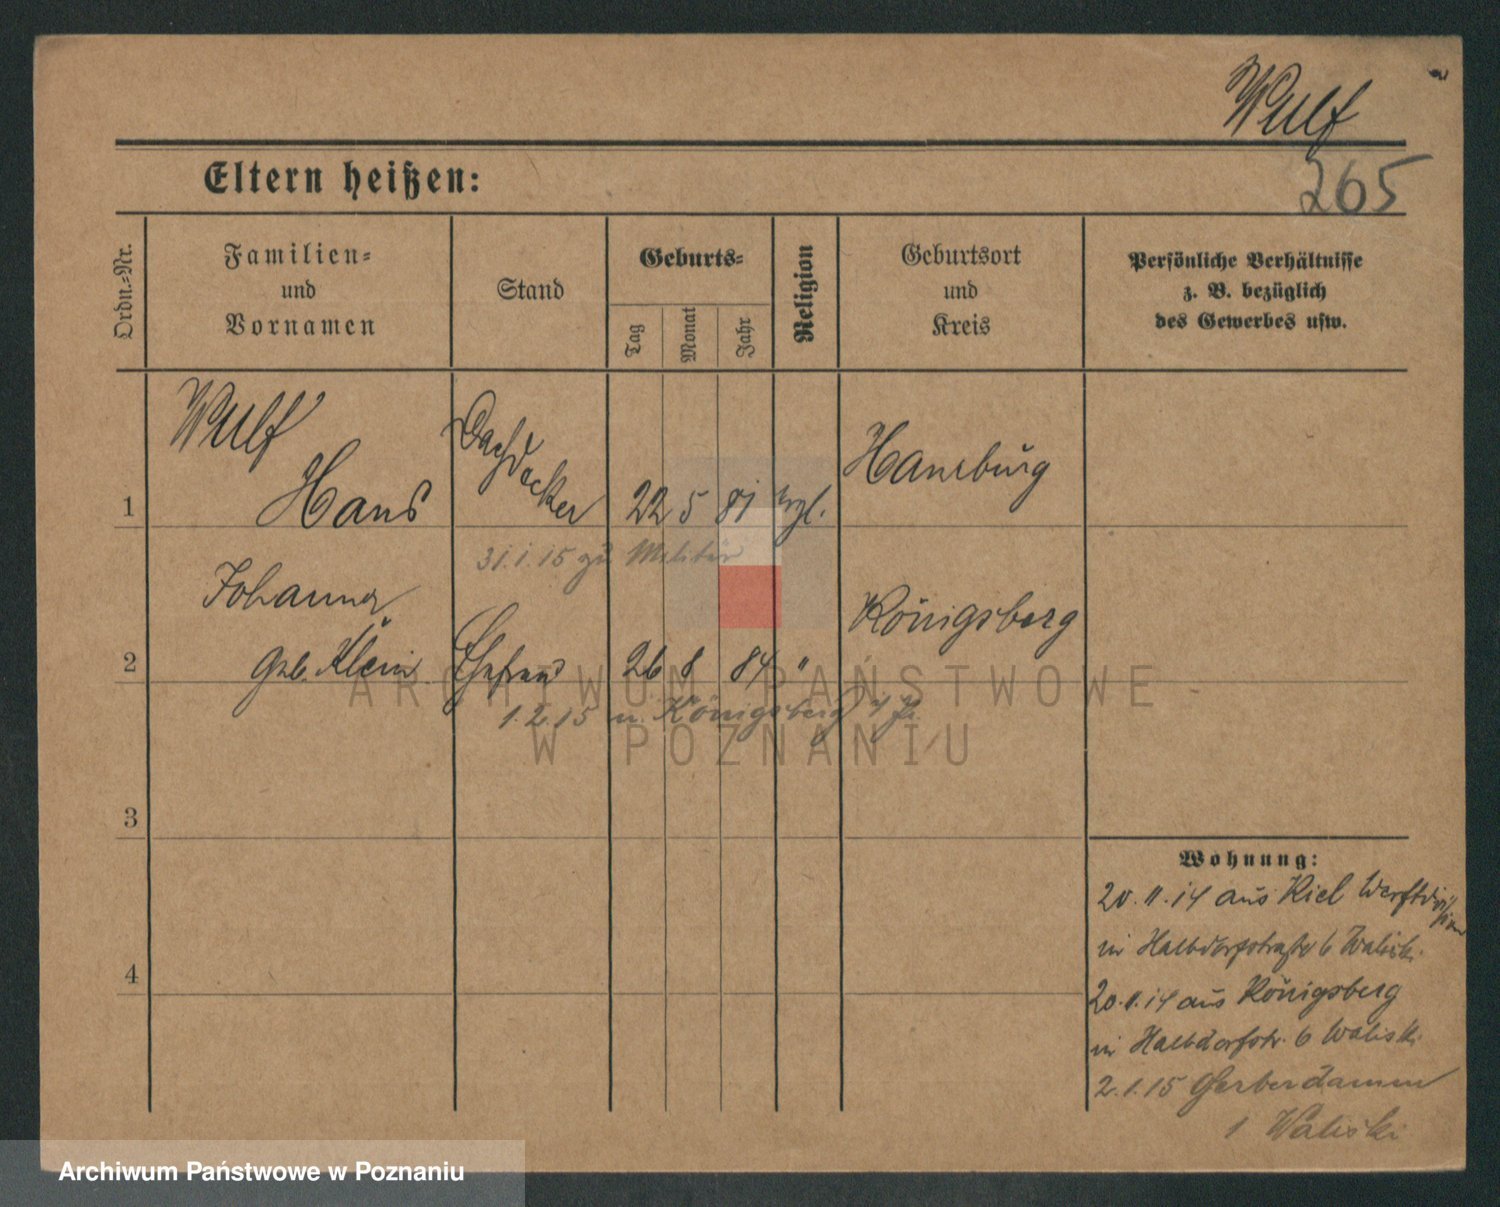 Wulf
265
Eltern heißen:
Ordn.-Nr.
Familien-
und
Vornamen
Stand
Geburts-
Tag
Monat
Jahr
Religion
Geburtsort
und
Kreis
Persönliche Verhältnisse
z. B. bezüglich
des Gewerbes usw.
1
Wulf
Hans
Dachdecker
22 5 81
Hamburg
31.1.15 zu Militär
2
Johanna
geb. Klein
Ehefrau
26 8 84 "
Königsberg
1.2.15 n. Königsberg i/Pr.
3
4
Wohnung:
20.11.14 aus Kiel Werftdivision
in Halbdorfstraße 6 Waliski
20.11.14 aus Königsberg
in Halbdorfstr. 6 Waliski
2.1.15 Gerberdamm
1 Waliski
ARCHIWUM PAŃSTWOWE
W POZNANIU
Archiwum Państwowe w Poznaniu